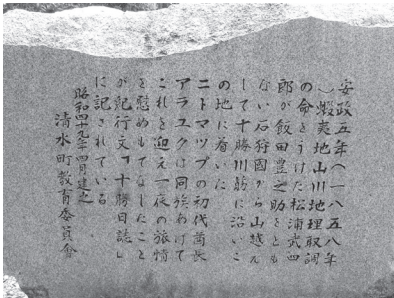 安政五年(一八五八年
)蝦夷地山川地理取調
の命をうけた松浦武四
郎が飯田豊之助ととも
ない石狩國から山越え
して十勝川筋に沿いこ
の地に着いた
ニトマップの初代酋長
アラユクは同族あげて
これを迎え一夜の旅情
を慰めもてなしたこと
が紀行文「十勝日誌」
に記されている
昭和四十九年四月建之
清水町教育委員会